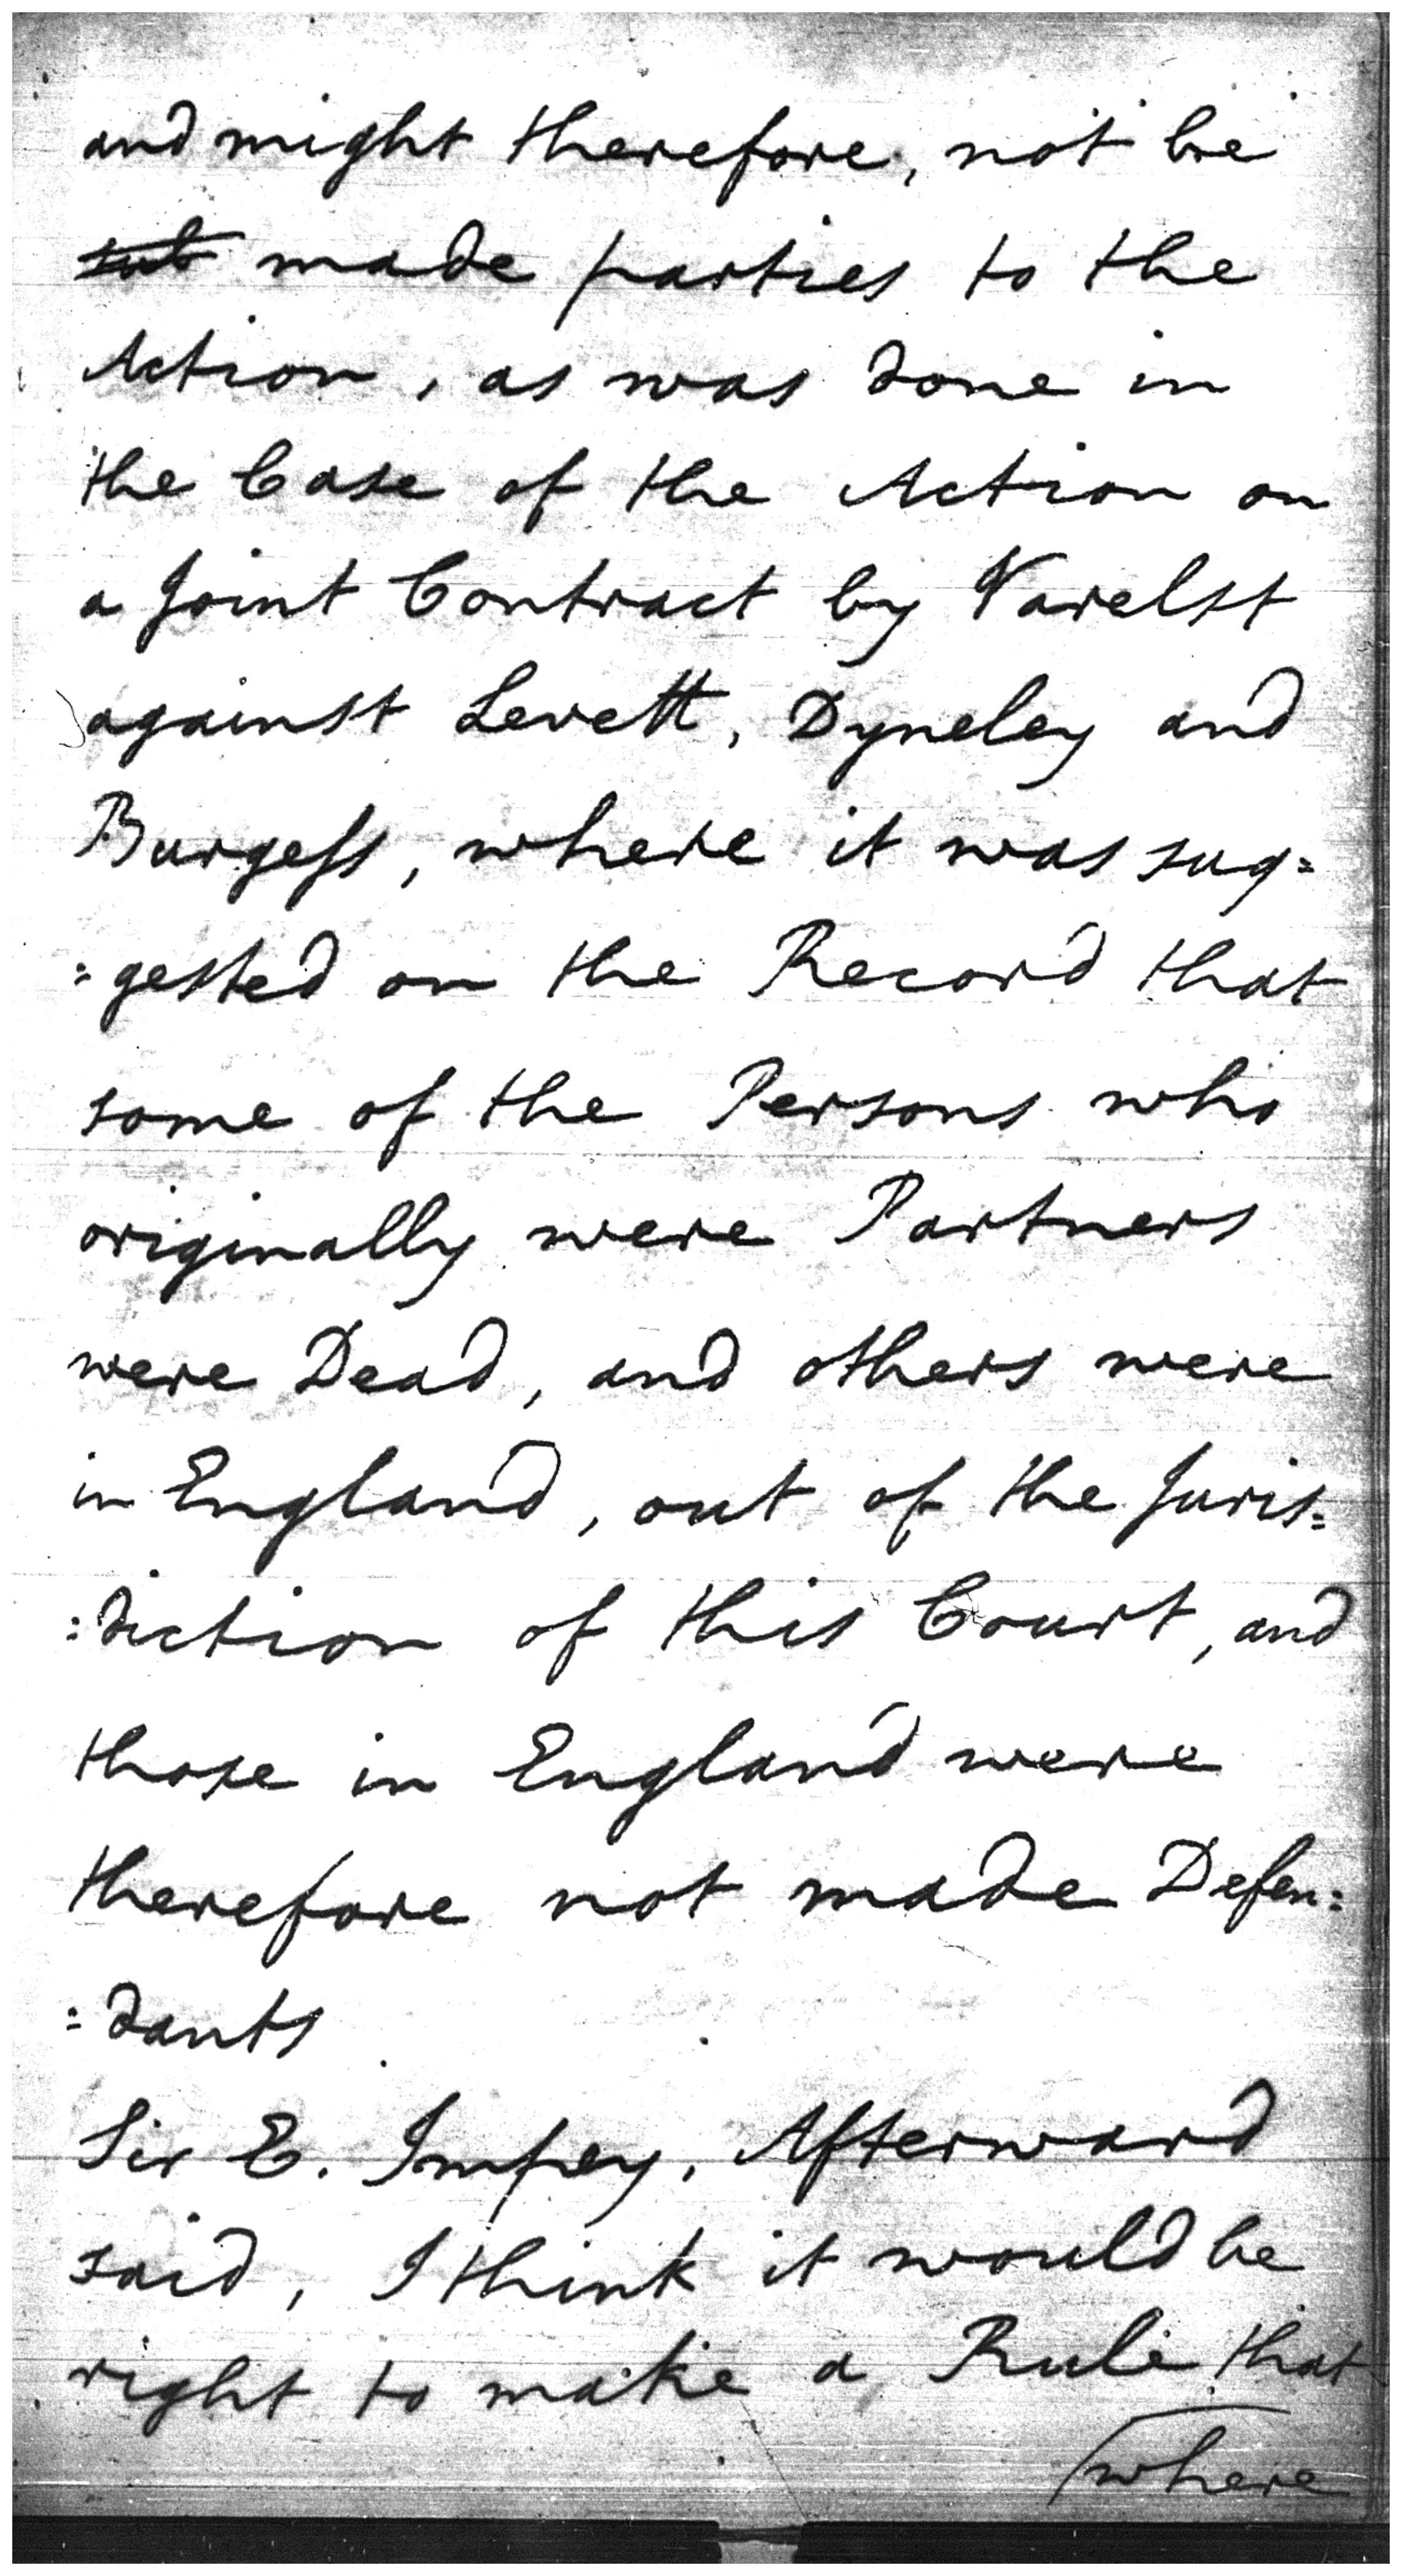 and might therefore, not be
sub made parties to the
Action, as was done in
the Case of the Action on
a Joint Contract by Varelst
against Levett, Dyneley and
Burgess, where it was sug=
=gested on the Record that
some of the Persons who
originally were Partners
were Dead, and others were
in England, out of the Juris=
=diction of this Court, and
those in England were
therefore not made Defen=
=dants
Sir E. Impey. Afterward
said, I think it would be
right to make a Rule that
where